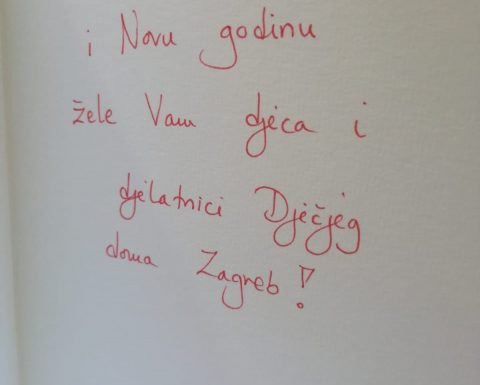 i Novu godinu
žele Vam djeca i
djelatnici Dječjeg
doma Zagreb!